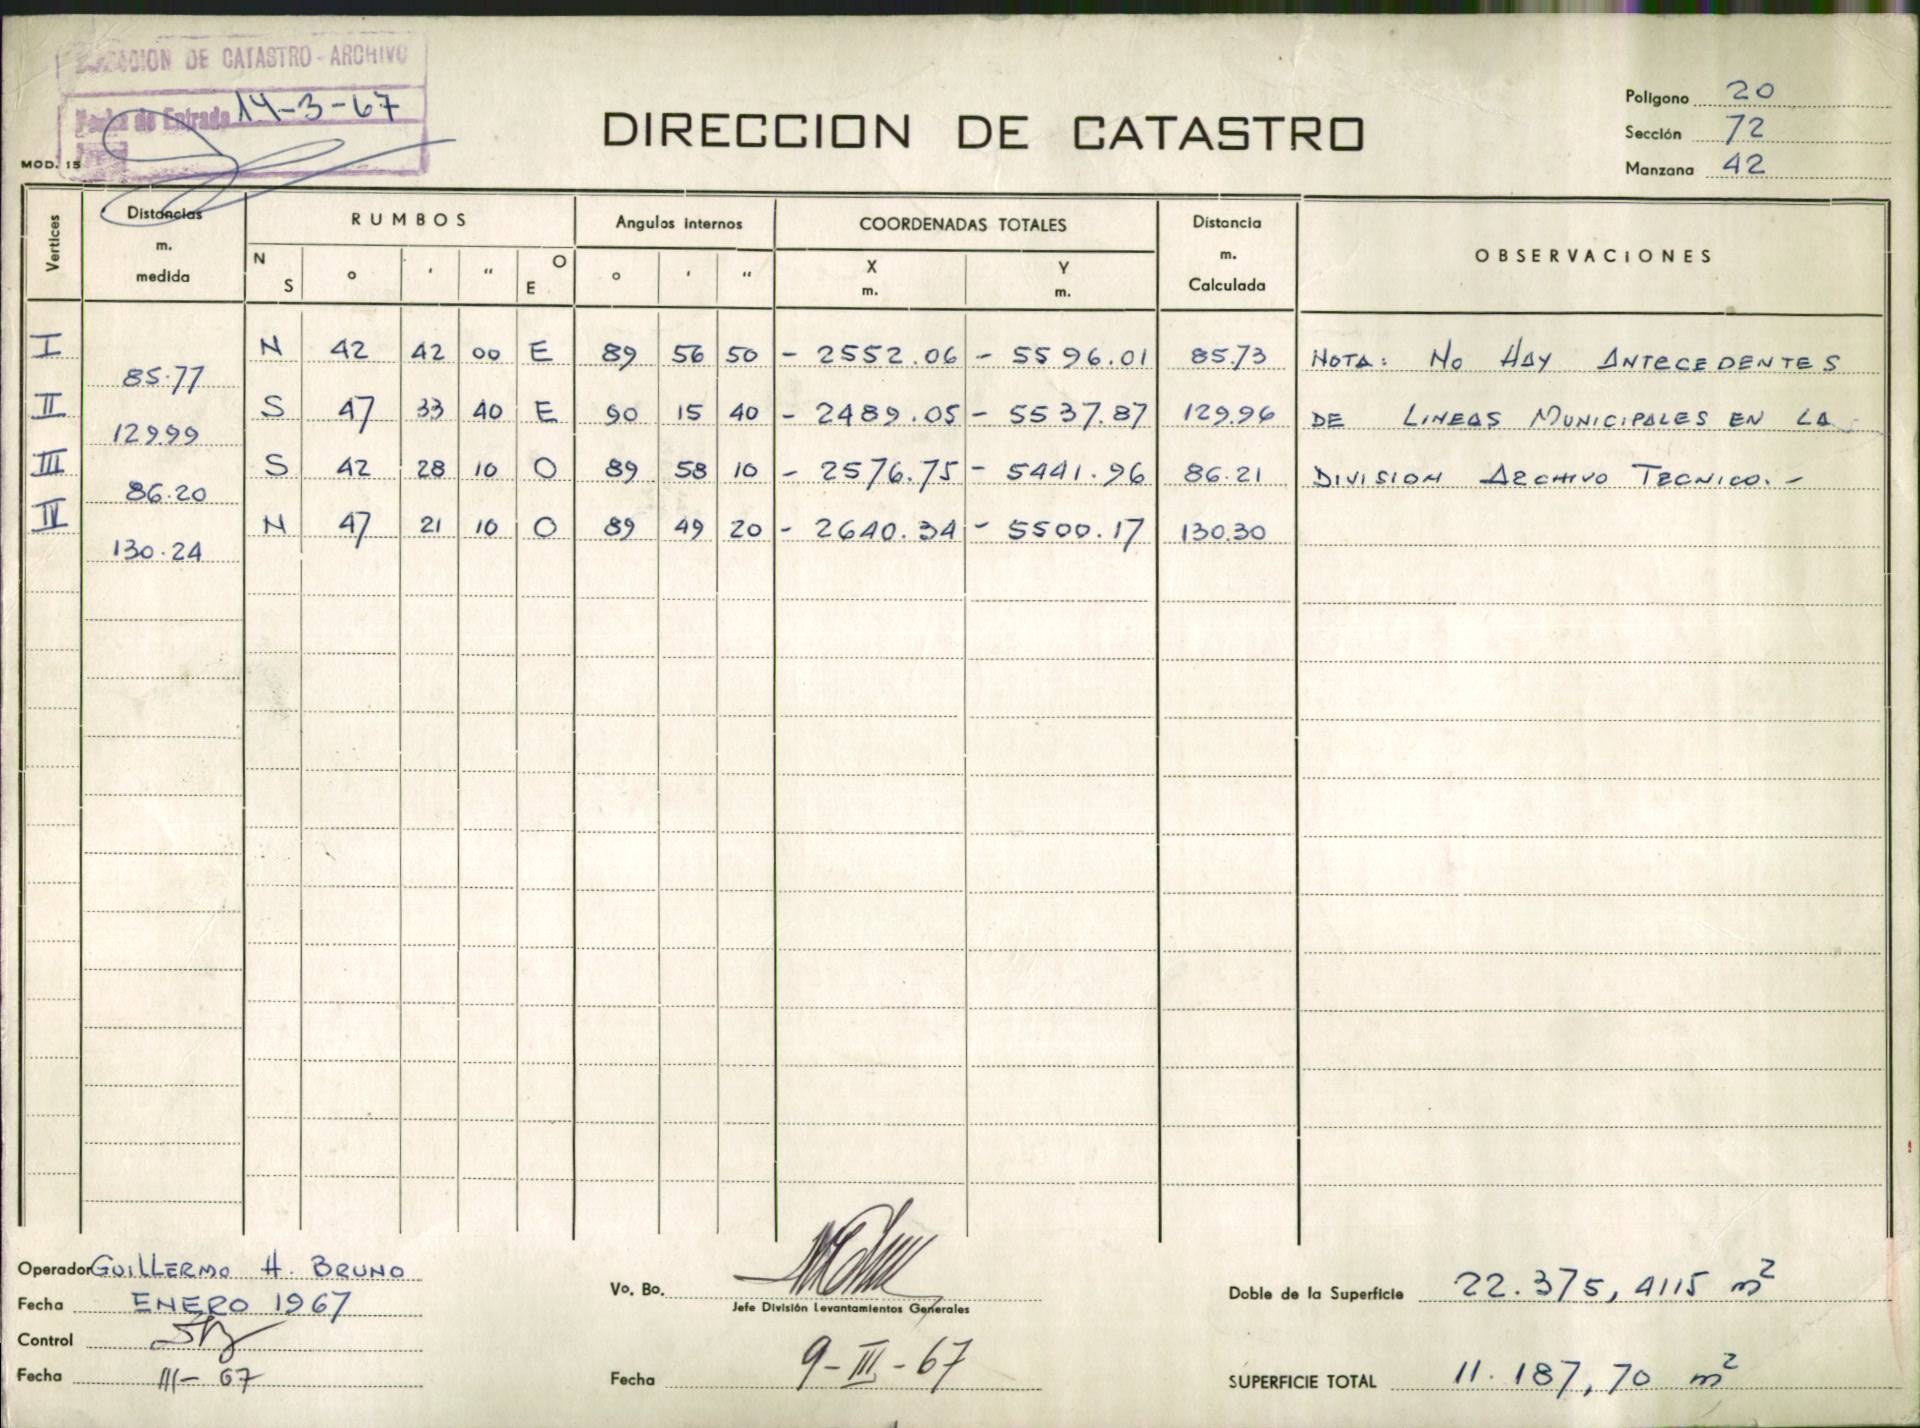 DE CATASTRO - ARCHIVO
Fecha de Entrada 14-3-67
MOD. 15
DIRECCION DE CATASTRO
Poligono 20
Sección 72
Manzana 42
Vertices
Distancias m. medida
RUMBOS
N S ° ' " O E
Angulos internos
° ' "
COORDENADAS TOTALES
X m. Y m.
Distancia m. Calculada
OBSERVACIONES
I N 42 42 00 E 89 56 50 - 2552.06 - 5596.01 85.73 NOTA: No HAY ANTECEDENTES
85.77
II S 47 33 40 E 90 15 40 - 2489.05 - 5537.87 129.96 DE LINEAS MUNICIPALES EN LA
129.99
III S 42 28 10 O 89 58 10 - 2576.75 - 5441.96 86.21 DIVISION ARCHIVO TECNICO. -
86.20
IV N 47 21 10 O 89 49 20 - 2640.34 - 5500.17 130.30
130.24
Operador GUILLERMO H. BRUNO
Fecha ENERO 1967
Control
Fecha III- 67
Vo. Bo.
Jefe División Levantamientos Generales
Fecha 9-III-67
Doble de la Superficie 22.375, 4115 m²
SUPERFICIE TOTAL 11.187,70 m²